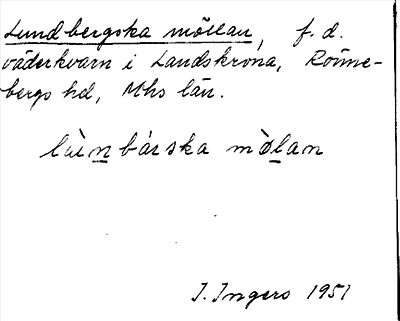 Lundbergska möllan, f.d.
väderkvarn i Landskrona, Rönne-
bergs hd, Mhs län.
lùnbárska mòlan
I. Ingers 1951